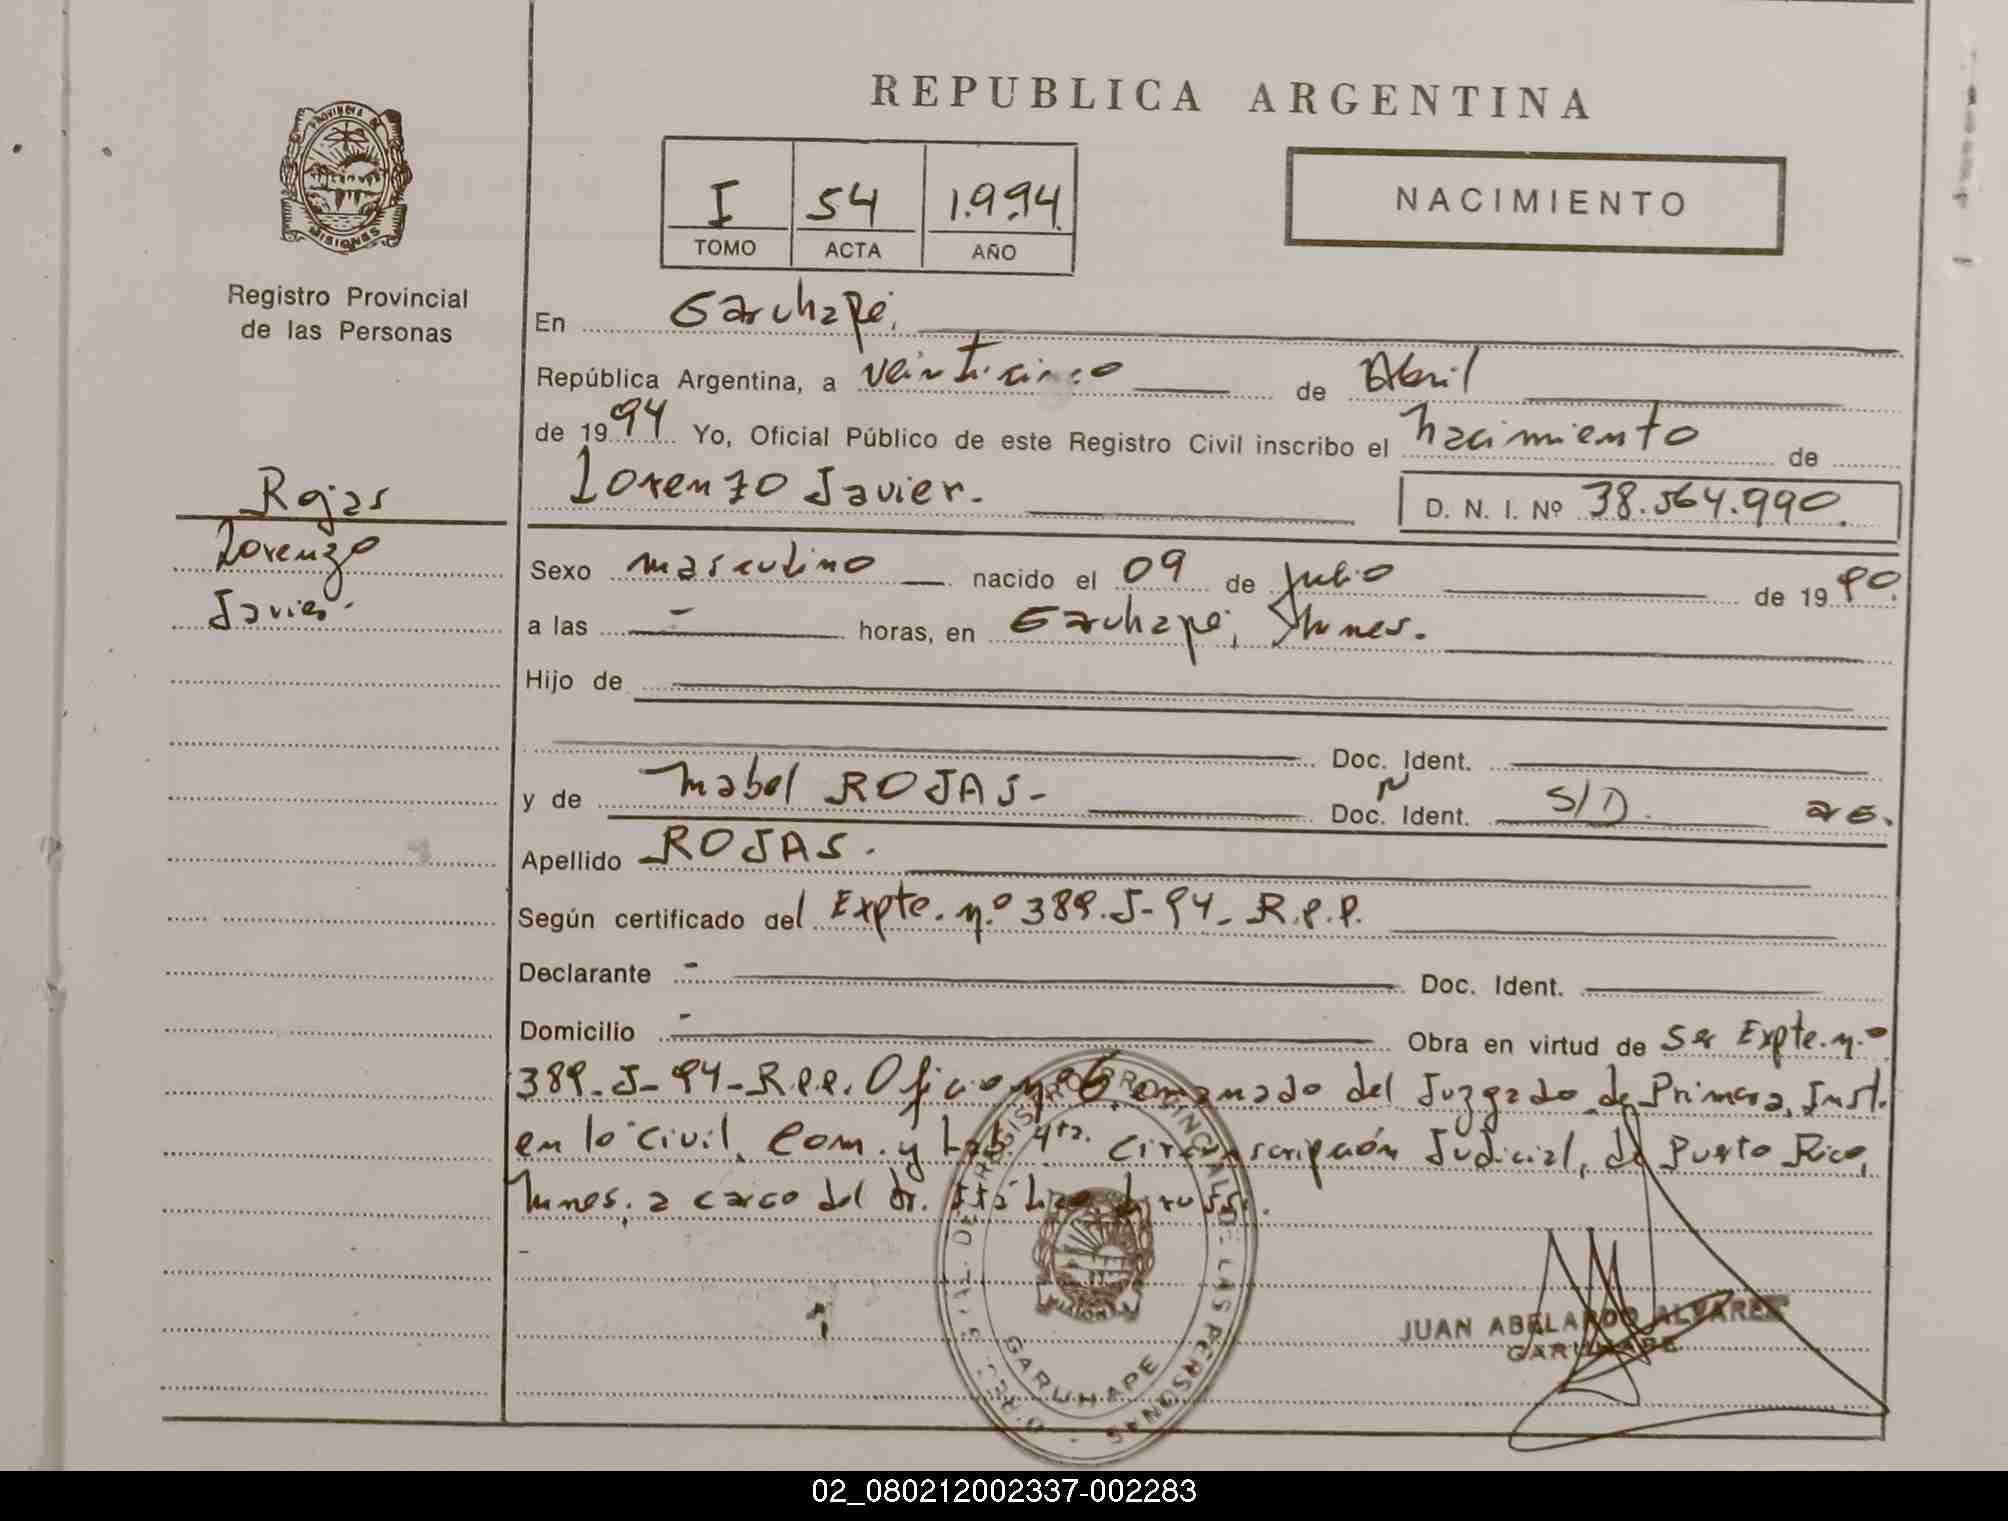 REPUBLICA ARGENTINA
Provincia de
MISIONES
Registro Provincial
de las Personas
I 54 1.994.
TOMO ACTA AÑO
NACIMIENTO
En Garuhapé,
República Argentina, a veinticinco de Abril
de 1994 Yo, Oficial Público de este Registro Civil inscribo el nacimiento de
Lorenzo Javier.
D. N. I. Nº 38.564.990.
Rojas
Lorenzo
Javier.
Sexo masculino nacido el 09 de julio de 1990.
a las - horas, en Garuhapé, Mnes.
Hijo de
Doc. Ident.
y de Mabel ROJAS- Doc. Ident. S/D.
Apellido ROJAS.
Según certificado del Expte. n.º 389-J-94- R.P.P.
Declarante - Doc. Ident.
Domicilio - Obra en virtud de Ser Expte. n.º
389-J-94-R.P.P. Oficio nº 6, emanado del Juzgado de Primera, Inst.
en lo Civil, Com. y Lab. 4ta. Circunscripción Judicial, de Puerto Rico,
Mnes, a cargo del dr.
JUAN ABELARDO ALVAREZ
GARUHAPE
REGISTRO PROVINCIAL DE LAS PERSONAS
GARUHAPE
MISIONES
02_080212002337-002283